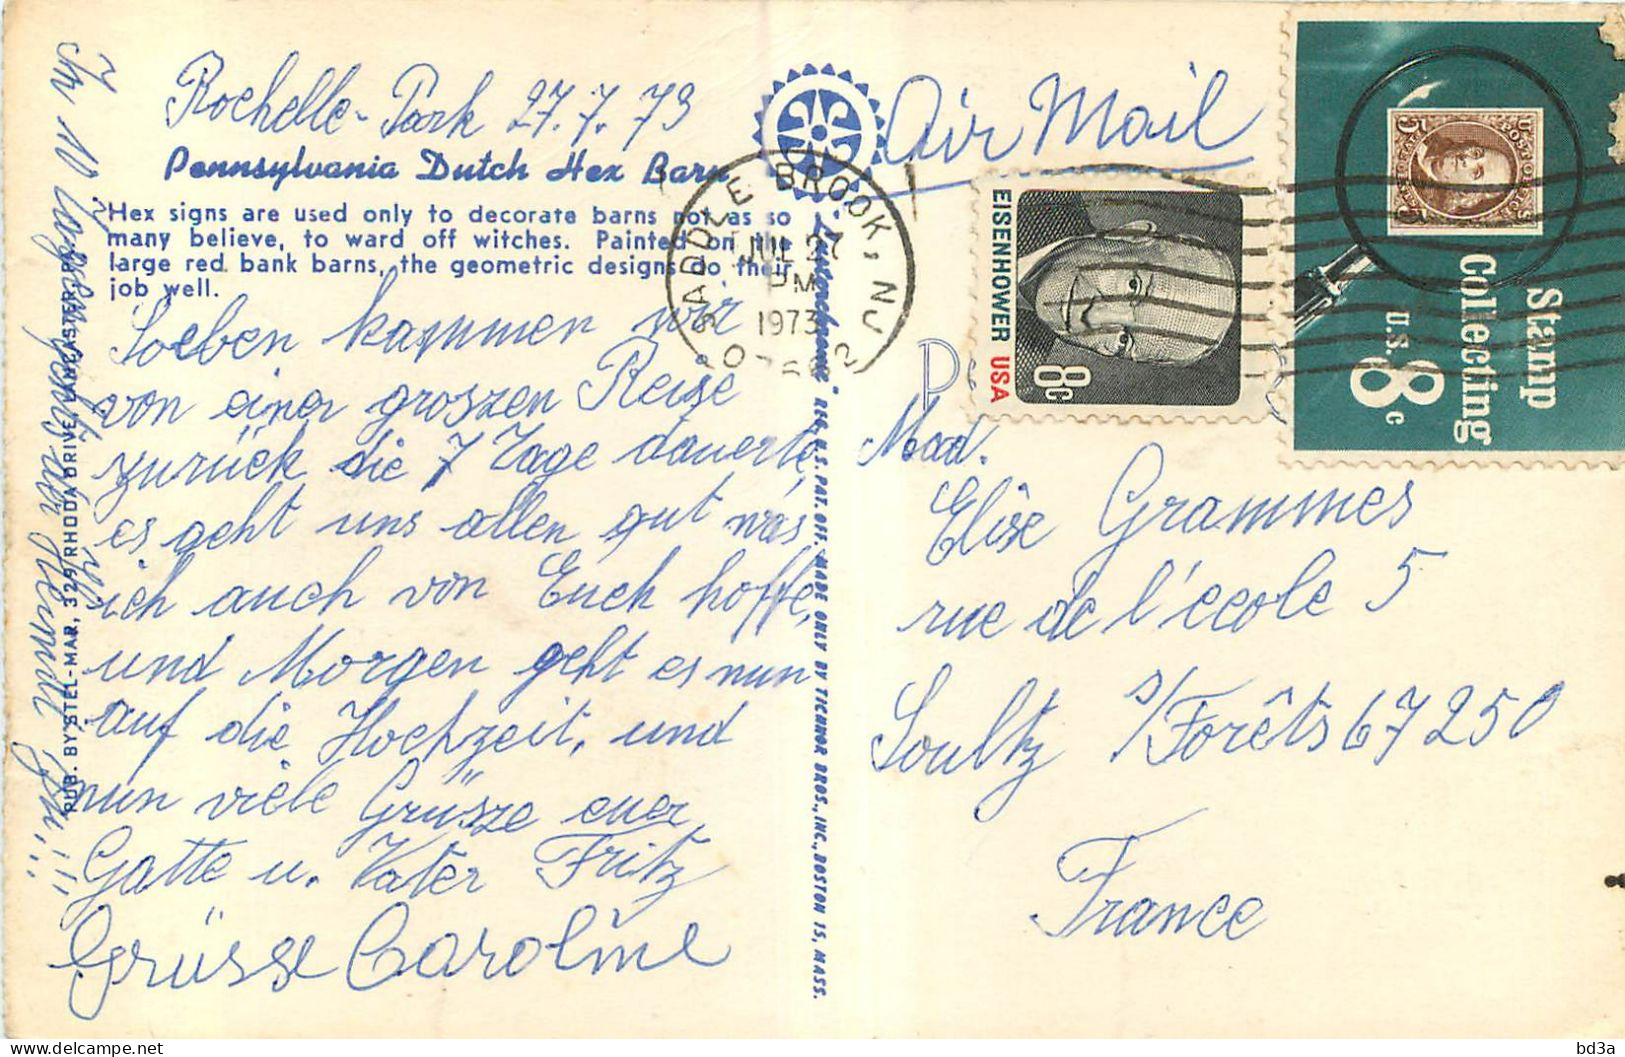 Rochelle-Park 27.7.73
Pennsylvania Dutch Hex Barn
"Hex signs are used only to decorate barns not as so
many believe, to ward off witches. Painted on the
large red bank barns, the geometric designs do their
job well.
Soeben kammen wir
von einer groszen Reise
zurück die 7 Tage dauerte
es geht uns allen gut was
ich auch von Euch hoffe,
und Morgen geht es nun
auf die Hochzeit, und
nun viele Grüsze euer
Gatte u. Vater Fritz
Grüsse Caroline
In 10 Tagen geht's der Heimat zu!!!
PUB. BY STEL-MAR, 329 RHODA DRIVE, LANCASTER, PA.
REG. U.S. PAT. OFF. MADE ONLY BY TICHNOR BROS., INC., BOSTON 15, MASS.
Air Mail
SADDLE BROOK, NJ
JUL 27
PM
1973
EISENHOWER USA
8c
Stamp
Collecting
U.S. 8c
P
Mad.
Elise Grammes
rue de l'école 5
Soultz s/Forêts 67250
France
bd3a